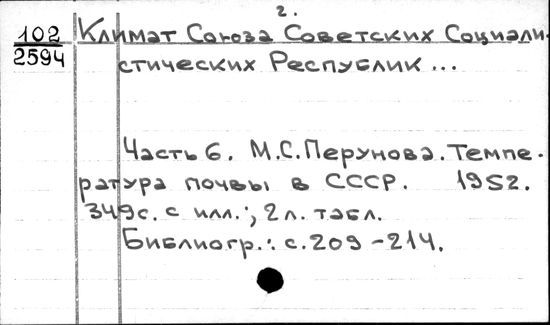 2.
102 Климат Союза Советских Социали-
2594 стических Республик ...
Часть 6. М.С.Перунова. Темпе-
ратура почвы в СССР. 1952.
349с. с илл.; 2л. табл.
Библиогр.: с.209-214.